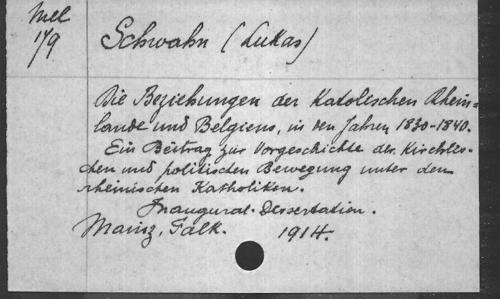 Mel
179
Schwahn (Lukas)
Die Beziehungen der Katolischen Rhein=
lande und Belgiens, in den Jahren 1830-1840.
Ein Beitrag zur Vorgeschichte der Kirchli-
chen und politischen Bewegung unter den
rheinischen Katholiken.
Inaugural-Dissertation.
Mainz, Falk. 1914.